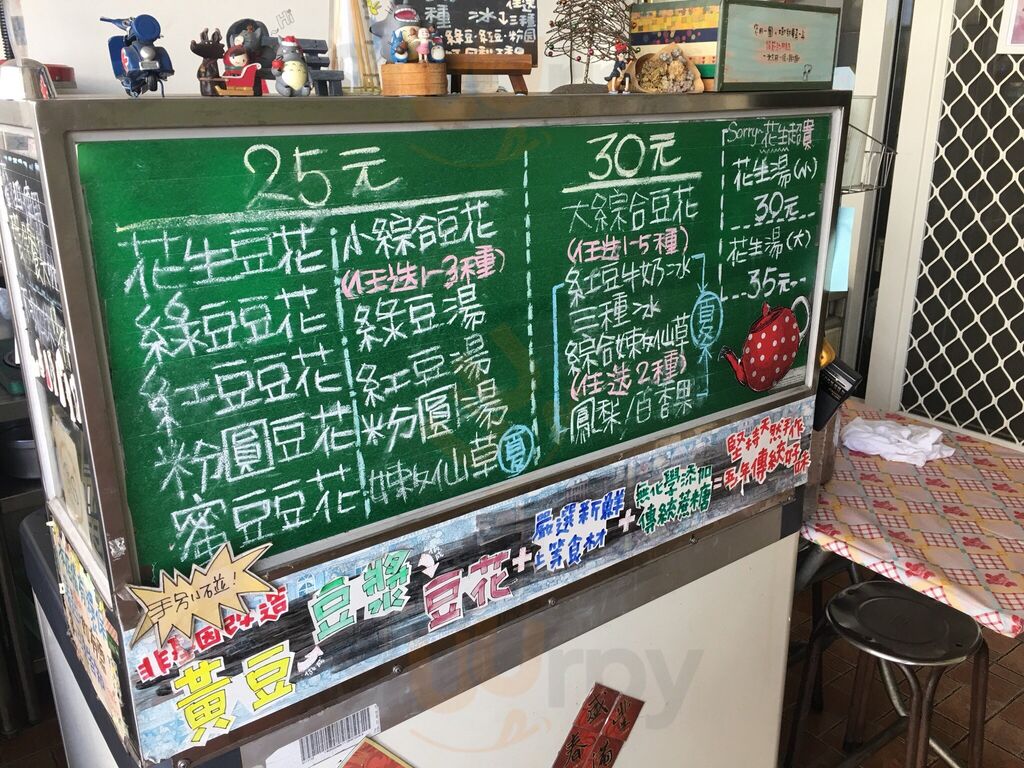 25元
花生豆花
綠豆豆花
紅豆豆花
粉圓豆花
蜜豆豆花
小綜合豆花
(任選1-3種)
綠豆湯
紅豆湯
粉圓湯
嫩仙草
夏
30元
大綜合豆花
(任選1-5種)
紅豆牛奶冰
三種冰
綜合嫩仙草
(任選2種)
鳳梨/百香果
Sorry~花生超貴
花生湯(小)
30元
花生湯(大)
35元
非基因改造
黃豆
豆漿
豆花
+
嚴選新鮮
上等食材
+
無化學添加
傳統蔗糖
=
堅持天然手作
百年傳統好味
Hi